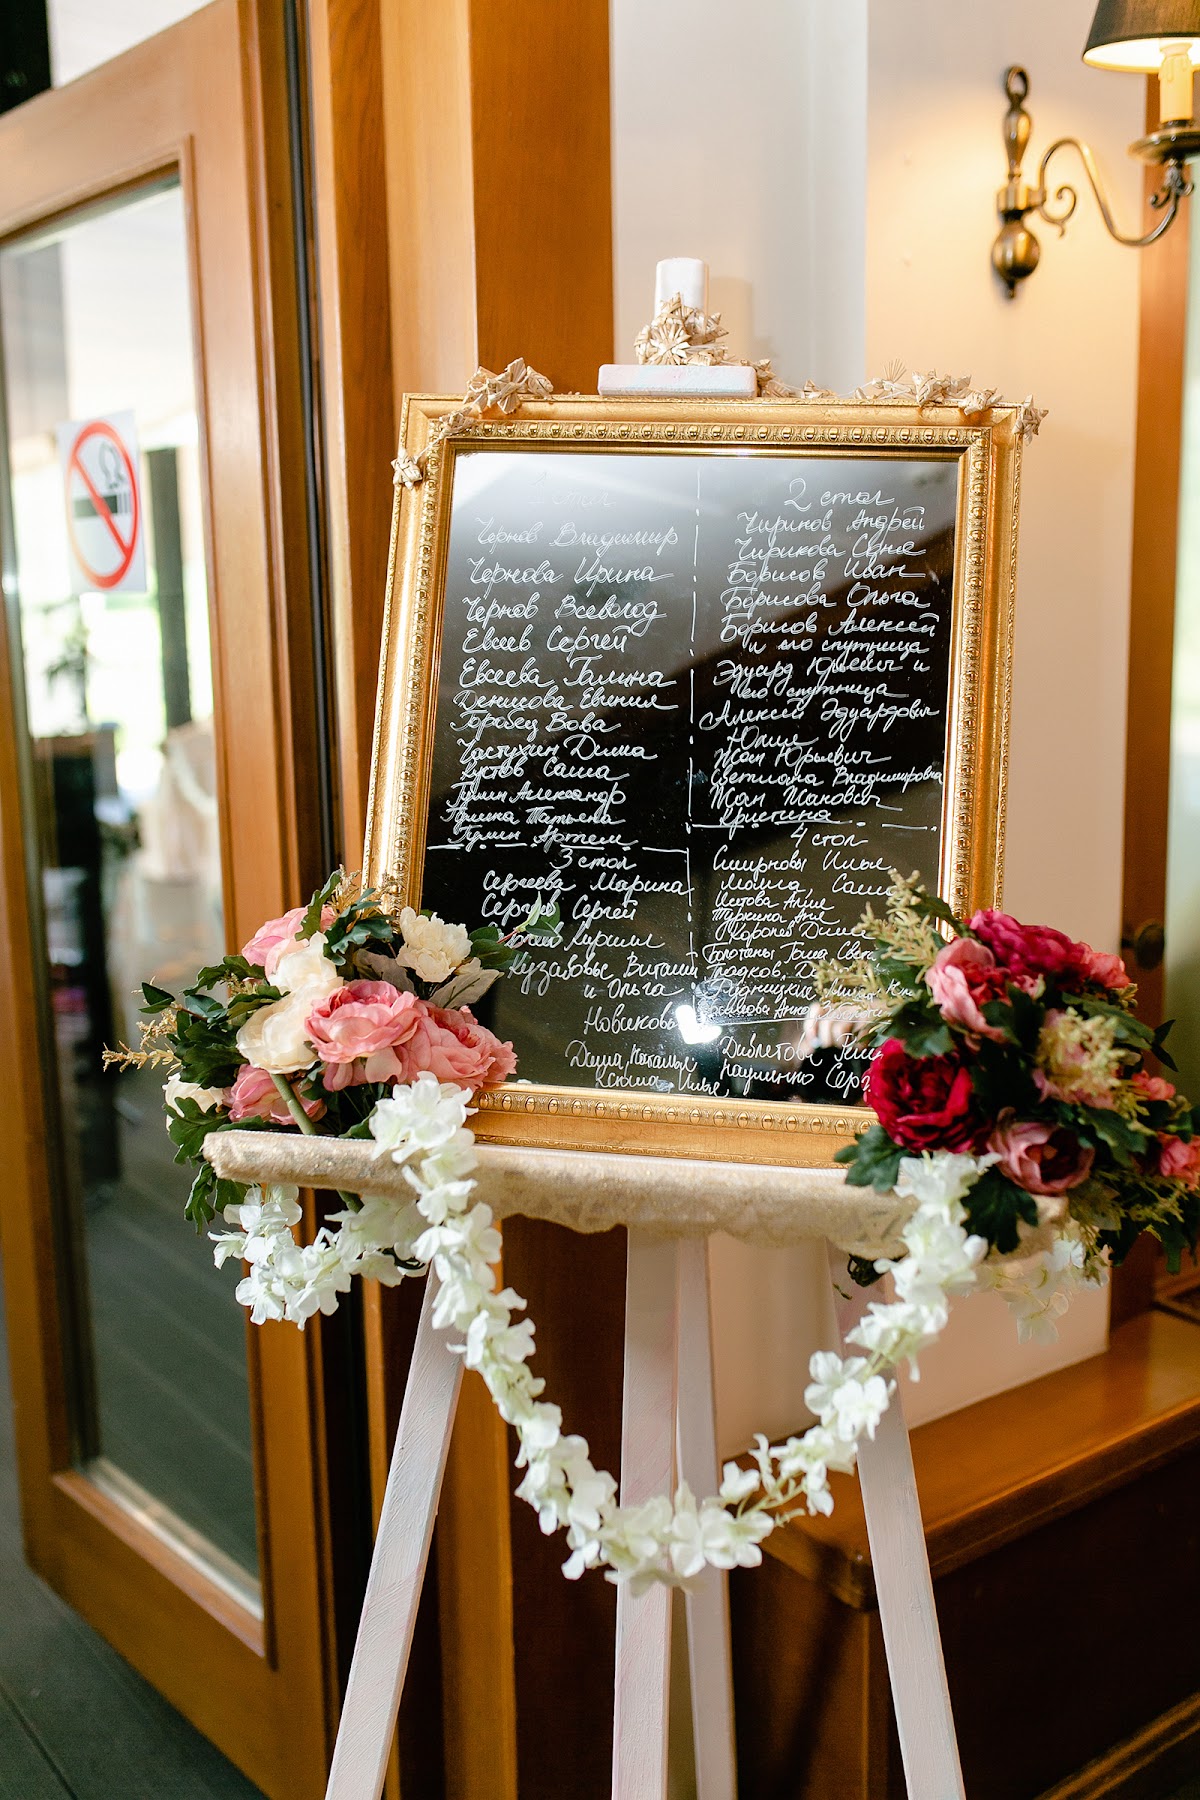 стол
Чернов Владимир
Чернова Ирина
Чернов Всеволод
Евсеев Сергей
Евсеева Галина
Денисова Евгения
Горобец Вова
Частухин Дима
Кустов Саша
Гумин Александр
Татьяна
Гумин Артем
3 стол
Сергеева Марина
Сергей
Кирилл
Кузавовы Виталий
и Ольга
Новиковы
Даша Наталья
Илья
2 стол
Чириков Андрей
Чирикова Соня
Борисов Иван
Борисова Ольга
Борисов Алексей
и его спутница
Эдуард Юрьевич и
его спутница
Алексей Эдуардович
Юлия
Жан Юрьевич
Светлана Владимировна
Жан Жанович
Кристина
4 стол
Смирновы Илья
Маша Саша
Аня
Туркина Аня
Королев Дима
Болотины Гоша Света
Гладков
Анна